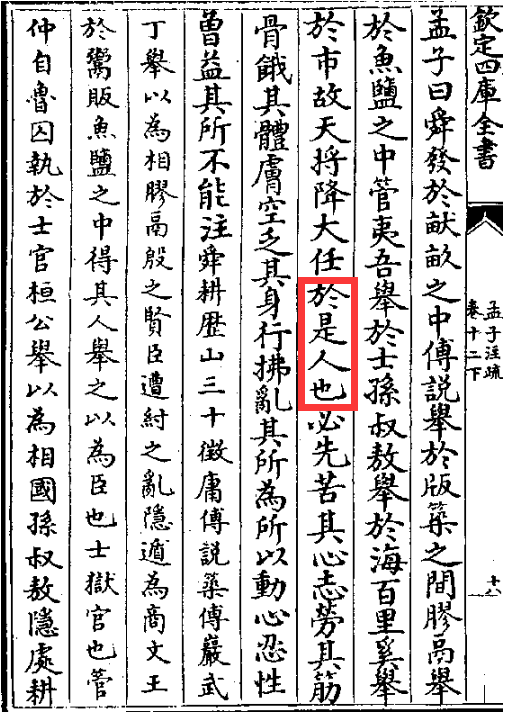 欽定四庫全書
孟子注疏
卷十二下
十八
孟子曰舜發於畎畝之中傅説舉於版築之間膠鬲舉
於魚鹽之中管夷吾舉於士孫叔敖舉於海百里奚舉
於市故天將降大任於是人也必先苦其心志勞其筋
骨餓其體膚空乏其身行拂亂其所為所以動心忍性
曽益其所不能注舜耕歴山三十徵庸傅説築傅巖武
丁舉以為相膠鬲殷之賢臣遭紂之亂隱遁為商文王
於鬻販魚鹽之中得其人舉之以為臣也士獄官也管
仲自魯囚執於士官桓公舉以為相國孫叔敖隱處耕